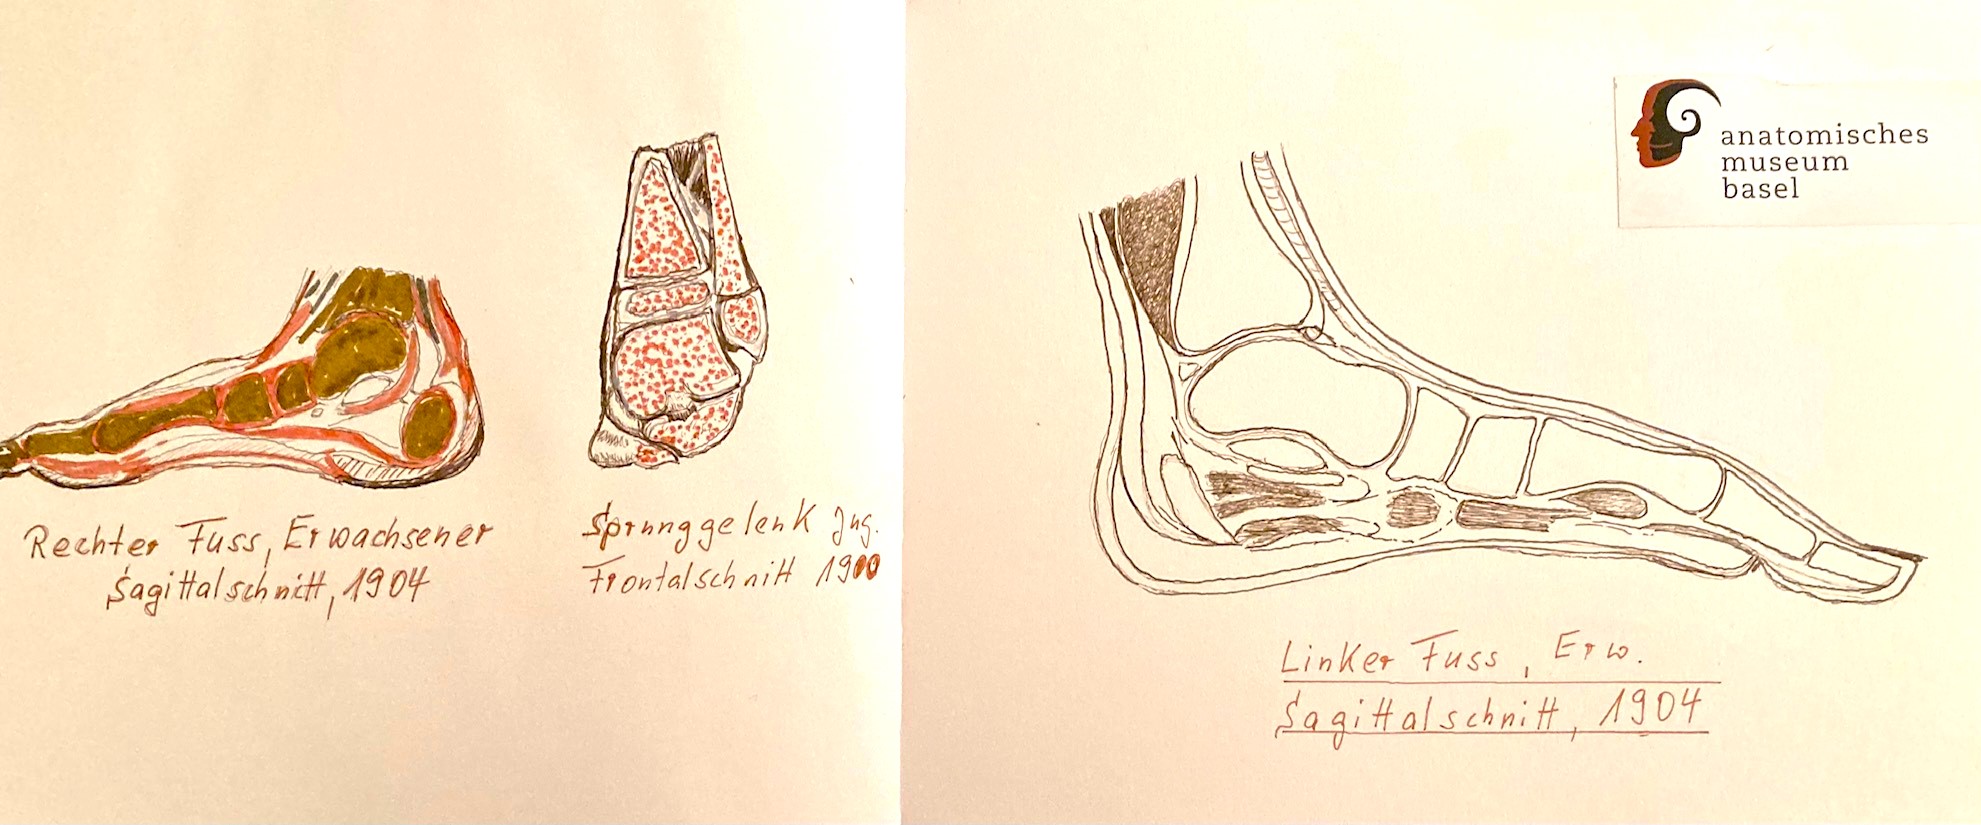 Rechter Fuss, Erwachsener
Sagittalschnitt, 1904
Sprunggelenk Jug.
Frontalschnitt 1900
anatomisches
museum
basel
Linker Fuss, Erw.
Sagittalschnitt, 1904